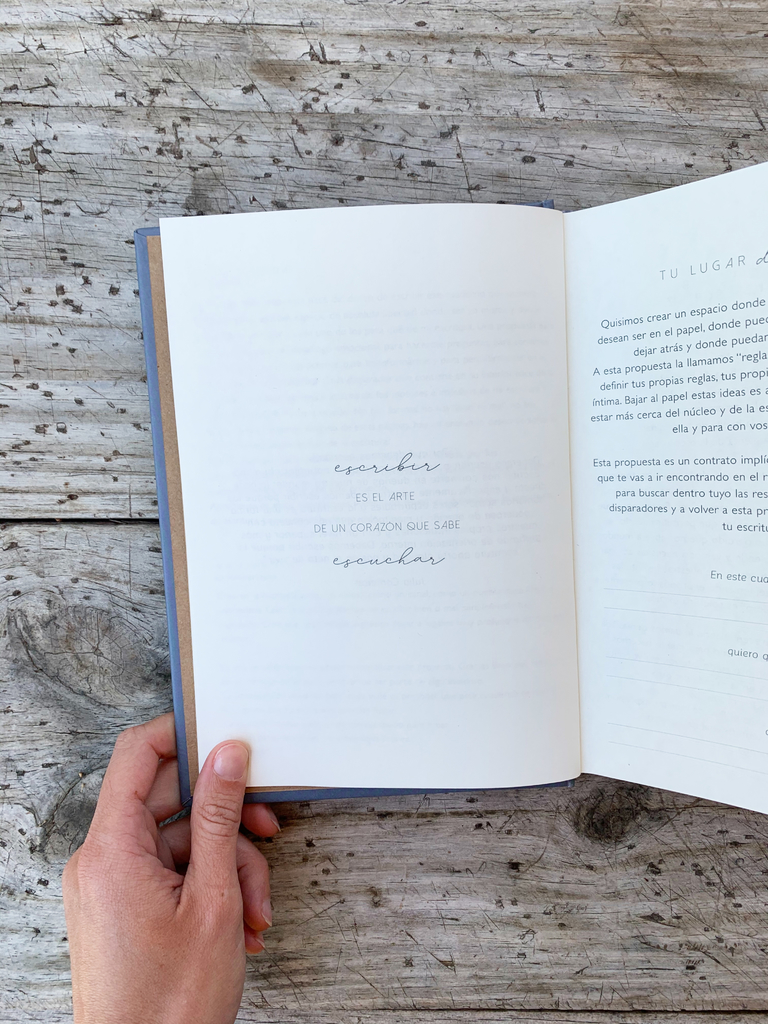 escribir
ES EL ARTE
DE UN CORAZON QUE SABE
escuchar
TU LUGAR
Quisimos crear un espacio donde
desean ser en el papel, donde
dejar atrás y donde puedan
A esta propuesta la llamamos
definir tus propias reglas, tus
íntima. Bajar al papel estas ideas es
estar más cerca del núcleo y de la
ella y para con vos
Esta propuesta es un contrato
que te vas a ir encontrando en el
para buscar dentro tuyo las
disparadores y a volver a esta
tu
En este
quiero